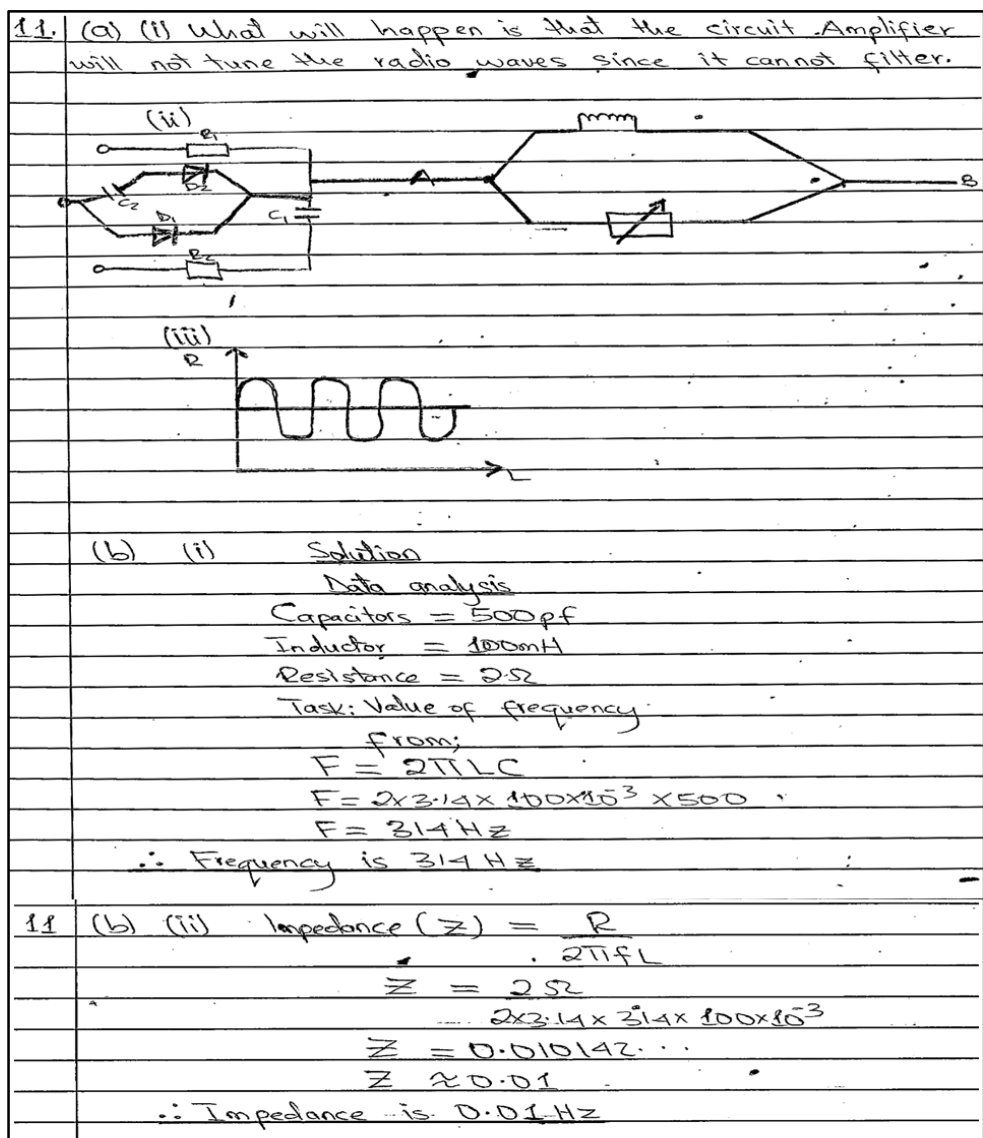 11. (a) (i) What will happen is that the circuit Amplifier
will not tune the radio waves since it cannot filter.
(ii)
R1
D2
C2
D1
C1
R2
A
B
(iii)
R
L
(b) (i) Solution
Data analysis
Capacitors = 500pf
Inductor = 100mH
Resistance = 2Ω
Task: Value of frequency
from;
F = 2πLC
F = 2x3.14x 100x10⁻³ x500
F = 314 Hz
∴ Frequency is 314 Hz
11 (b) (ii) Impedance (Z) = R
2πfL
Z = 2Ω
2x3.14x 314x 100x10⁻³
Z = 0.010142...
Z ≈ 0.01
∴ Impedance is 0.01 Hz